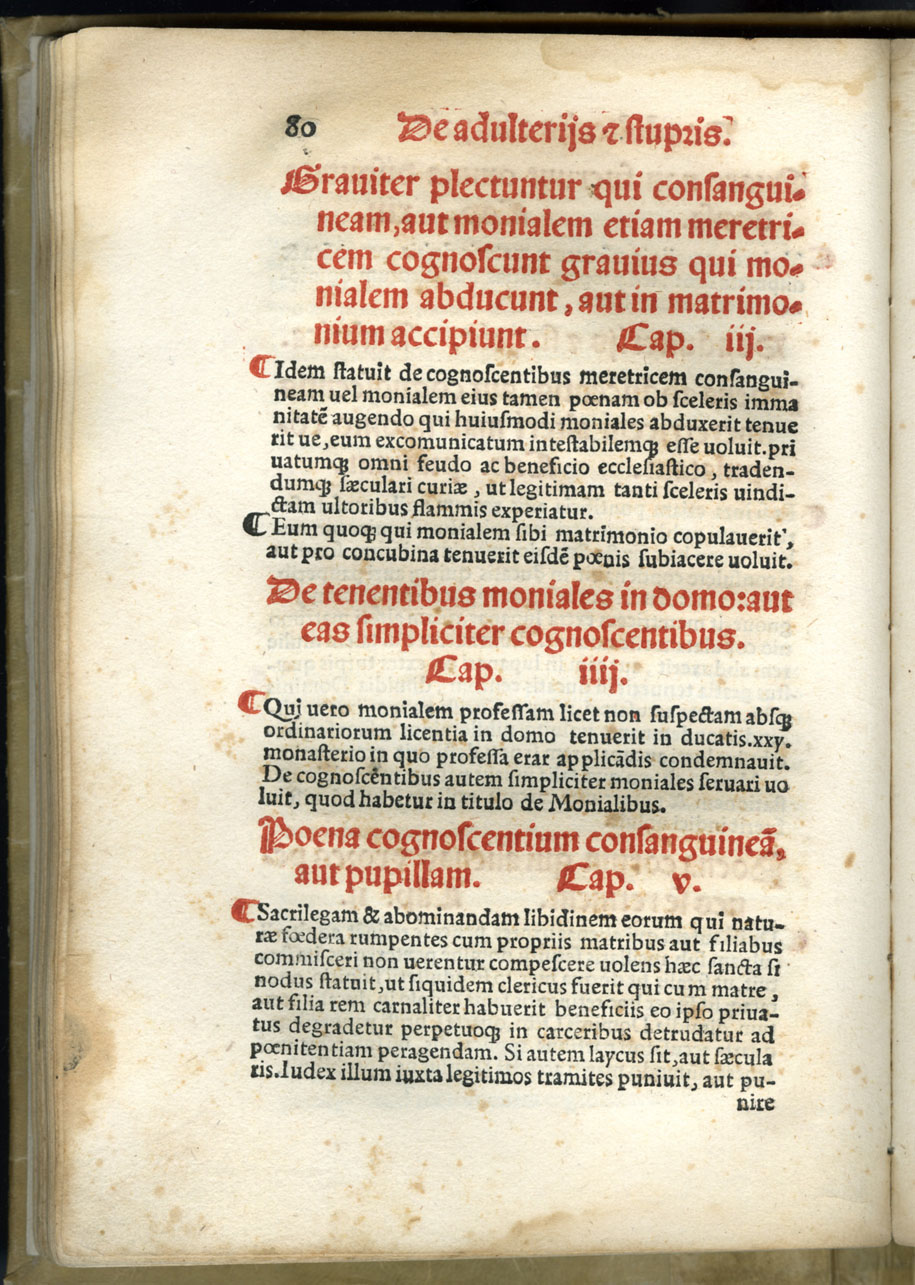 80 De adulterijs ⁊ stupris.
Grauiter plectuntur qui consangui-
neam, aut monialem etiam meretri-
cem cognoscunt grauius qui mo-
nialem abducunt, aut in matrimo-
nium accipiunt. Cap. iij.
¶ Idem statuit de cognoscentibus meretricem consangui-
neam uel monialem eius tamen pœnam ob sceleris imma
nitatē augendo qui huiusmodi moniales abduxerit tenue
rit ue, eum excomunicatum intestabilemqꝫ esse uoluit. pri
uatumqꝫ omni feudo ac beneficio ecclesiastico, traden-
dumqꝫ sæculari curiæ, ut legitimam tanti sceleris uindi-
ctam ultoribus flammis experiatur.
¶ Eum quoqꝫ qui monialem sibi matrimonio copulauerit',
aut pro concubina tenuerit eisdē pœnis subiacere uoluit.
De tenentibus moniales in domo: aut
eas simpliciter cognoscentibus.
Cap. iiij.
¶ Qui uero monialem professam licet non suspectam absqꝫ
ordinariorum licentia in domo tenuerit in ducatis. xxy.
monasterio in quo professa erar applicādis condemnauit.
De cognoscētibus autem simpliciter moniales seruari uo
luit, quod habetur in titulo de Monialibus.
Poena cognoscentium consanguineā,
aut pupillam. Cap. v.
¶ Sacrilegam & abominandam libidinem eorum qui natu-
ræ fœdera rumpentes cum propriis matribus aut filiabus
commisceri non uerentur compescere uolens hæc sancta si
nodus statuit, ut siquidem clericus fuerit qui cum matre,
aut filia rem carnaliter habuerit beneficiis eo ipso priua-
tus degradetur perpetuoqꝫ in carceribus detrudatur ad
pœnitentiam peragendam. Si autem laycus sit, aut sæcula
ris. Iudex illum iuxta legitimos tramites puniuit, aut pu-
nire